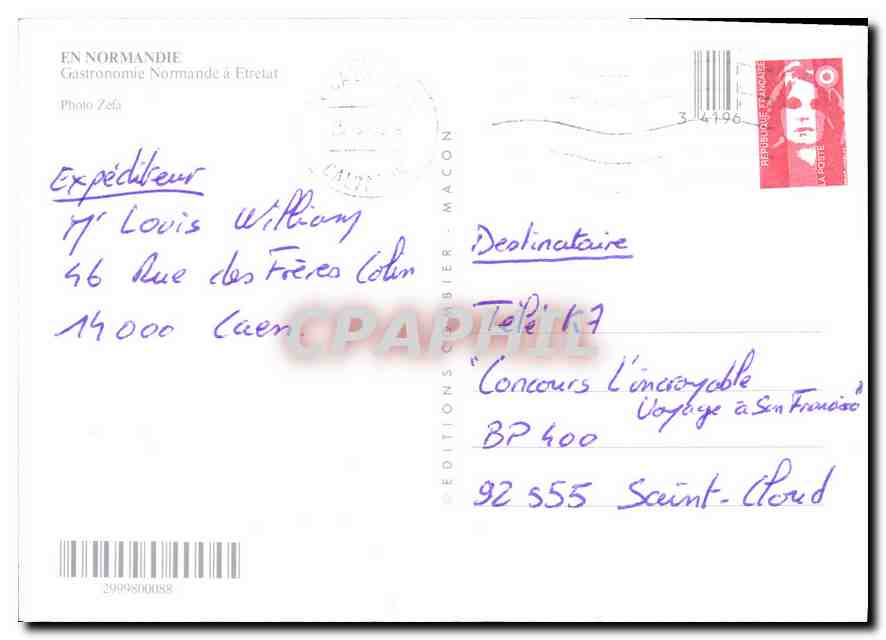 EN NORMANDIE
Gastronomie Normande à Etretat
Photo Zefa
Expéditeur
Mr Louis William
46 Rue des Frères Colin
14000 Caen
© EDITIONS CAMBIER - MACON
3 4196
REPUBLIQUE FRANÇAISE
LA POSTE
Destinataire
Télé K7
"Concours L'incroyable
Voyage à San Francisco"
BP 400
92 555 Saint-Cloud
CPAPHIL
2999800088